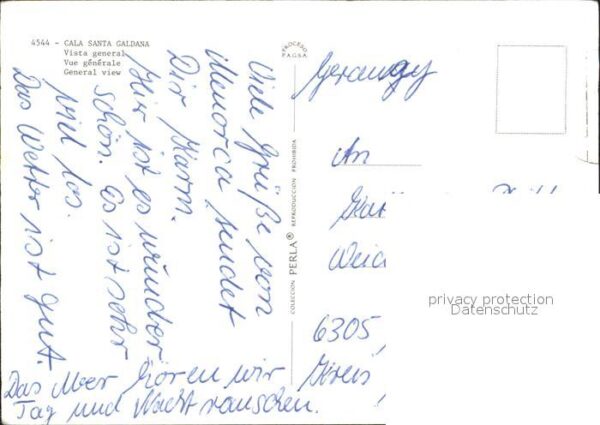 4544 - CALA SANTA GALDANA
Vista general
Vue générale
General view
PROCESO
PAGSA
Viele Grüße von
Menorca sendet
Dir Karin.
Hier ist es wunder
schön. Es ist sehr
viel los.
Das Wetter ist gut.
Das Meer hören wir
Tag und Nacht rauschen.
COLECCION PERLA® REPRODUCCION PROHIBIDA
Germany
An
6305,
Kreis
privacy protection
Datenschutz